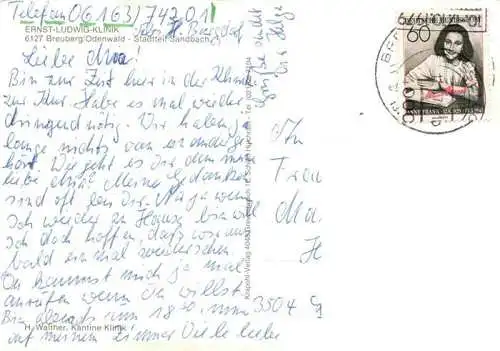 Telefon 06163/74201
ERNST-LUDWIG-KLINIK
bei H. Burgdorf
6127 Breuberg/Odenwald - Stadtteil Sandbach
Liebe Ma!
Bin zur Zeit hier in der Klinik
zur Kur. Habe es mal wieder
dringend nötig. Wir haben ja
lange nichts von einander ge
hört. Wie geht es dir denn meine
liebe Ma? Meine Gedanken
sind oft bei Dir. Na ja wenn
ich wieder zu Hause bin will
ich doch hoffen, dass wir uns
bald einmal wiedersehen.
Du kannst mich ja mal
anrufen wenn Du willst.
Bin abends um 18 30
H. Walther, Kantine Klinik
auf meinem Zimmer Viele liebe
Grüße sendet
Dir Helge
Krapohl-Verlag
An
Frau
Ma
H
3504
60
ANNE FRANK